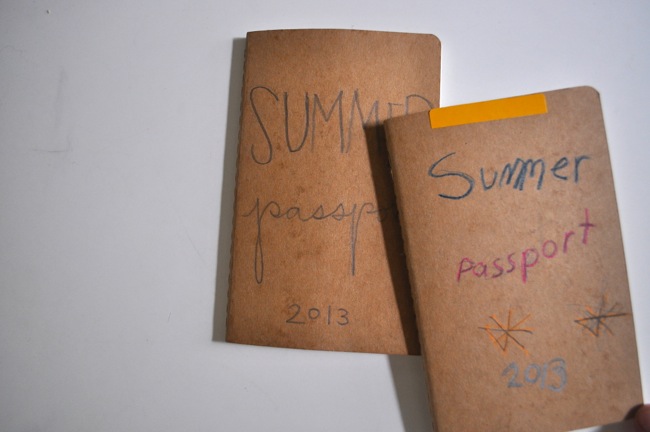 SUMMER
passpo
2013
Summer
Passport
2013